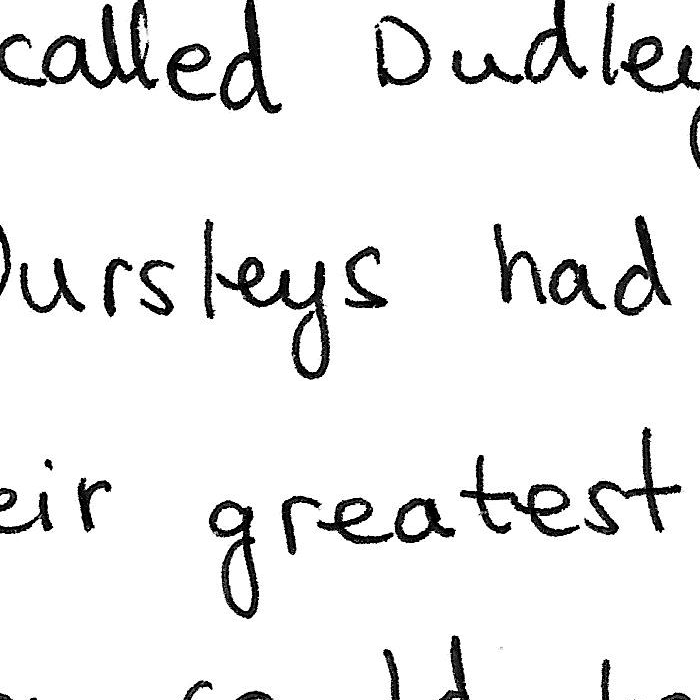 called Dudley
Dursleys had
eir greatest